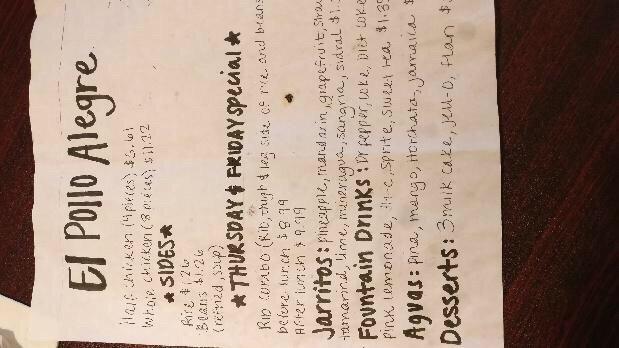 El Pollo Alegre
Half chicken (4 pieces) $5.61
Whole chicken (8 pieces) $11.22
★ SIDES ★
Rice $1.26
Beans $1.26
(refried soup)
★ THURSDAY & FRIDAY special ★
Rib combo (Rib, thigh & leg side of rice and beans
before lunch $8.99
After lunch $9.99
Jarritos: pineapple, mandarin, grapefruit,
tamarind, lime, mineragua, sangria, sidral
Fountain Drinks: Dr pepper, coke, Diet coke
pink lemonade, Hi-c, Sprite, sweet tea $1.39
Aguas: pina, mango, Horchata, jamaica $
Desserts: 3 milk cake, Jell-O, flan $